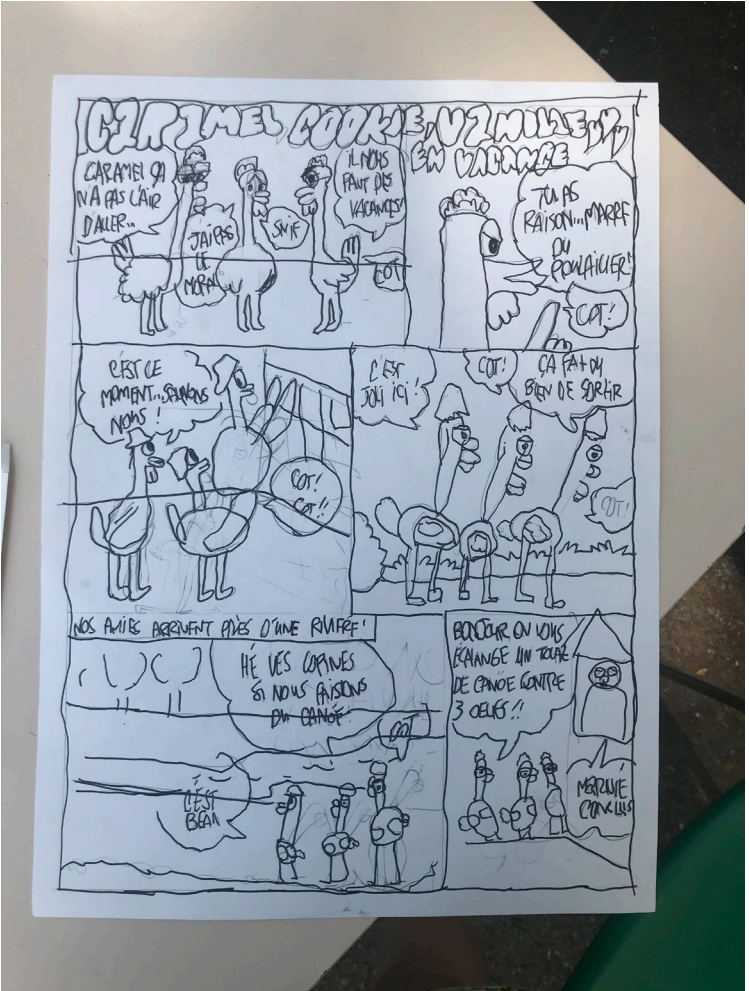 CARAMEL COOKIE, VANILLE
EN VACANCE
CARAMEL ÇA
N'A PAS L'AIR
D'ALLER...
J'AI PAS
LE
MORAL
SNIF
IL NOUS
FAUT DES
VACANCES!
COT
TU AS
RAISON... MARRE
DU
POULAILLER!
COT!
C'EST LE
MOMENT... SAUVONS
NOUS!
COT!
COT!!
C'EST
JOLI ICI!
COT!
ÇA FAIT DU
BIEN DE SORTIR
COT!
NOS AMIES ARRIVENT PRÈS D'UNE RIVIÈRE!
HÉ LES COPINES
SI NOUS FAISIONS
DU CANOË!
COT
C'EST
BEAU
BONJOUR ON VOUS
ÉCHANGE UN TOUR
DE CANOË CONTRE
3 OEUFS!!
MARCHÉ
CONCLUS